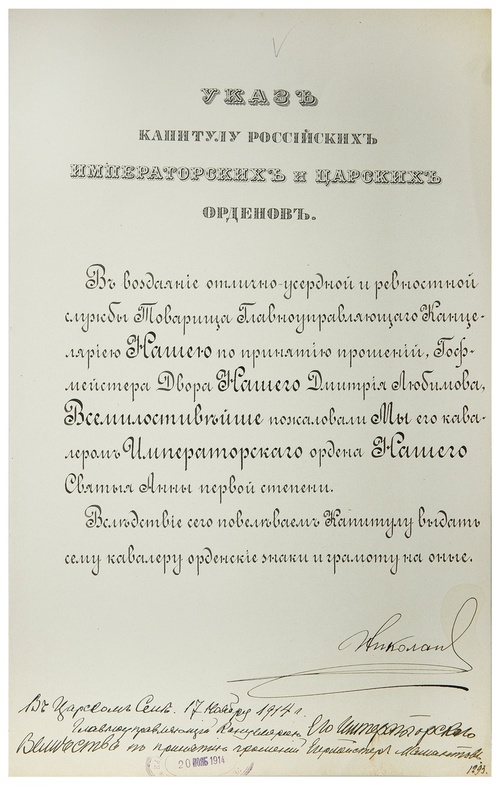 УКАЗЪ
КАПИТУЛУ РОССІЙСКИХЪ
ИМПЕРАТОРСКИХЪ и ЦАРСКИХЪ
ОРДЕНОВЪ.
Въ воздаяніе отлично-усердной и ревностной
службы Товарища Главноуправляющаго Канце-
ляріею Нашею по принятію прошеній, Гоф-
мейстера Двора Нашего Дмитрія Любимова,
Всемилостивѣйше пожаловали Мы его кава-
леромъ Императорскаго ордена Нашего
Святыя Анны первой степени.
Вслѣдствіе сего повелѣваемъ Капитулу выдать
сему кавалеру орденскіе знаки и грамоту на оные.
Николай
Въ Царскомъ Селѣ. 17 Ноября 1914 г.
Главноуправляющій Канцеляріею Его Императорскаго
Величества по принятію прошеній
20 НОЯБ 1914
1293.